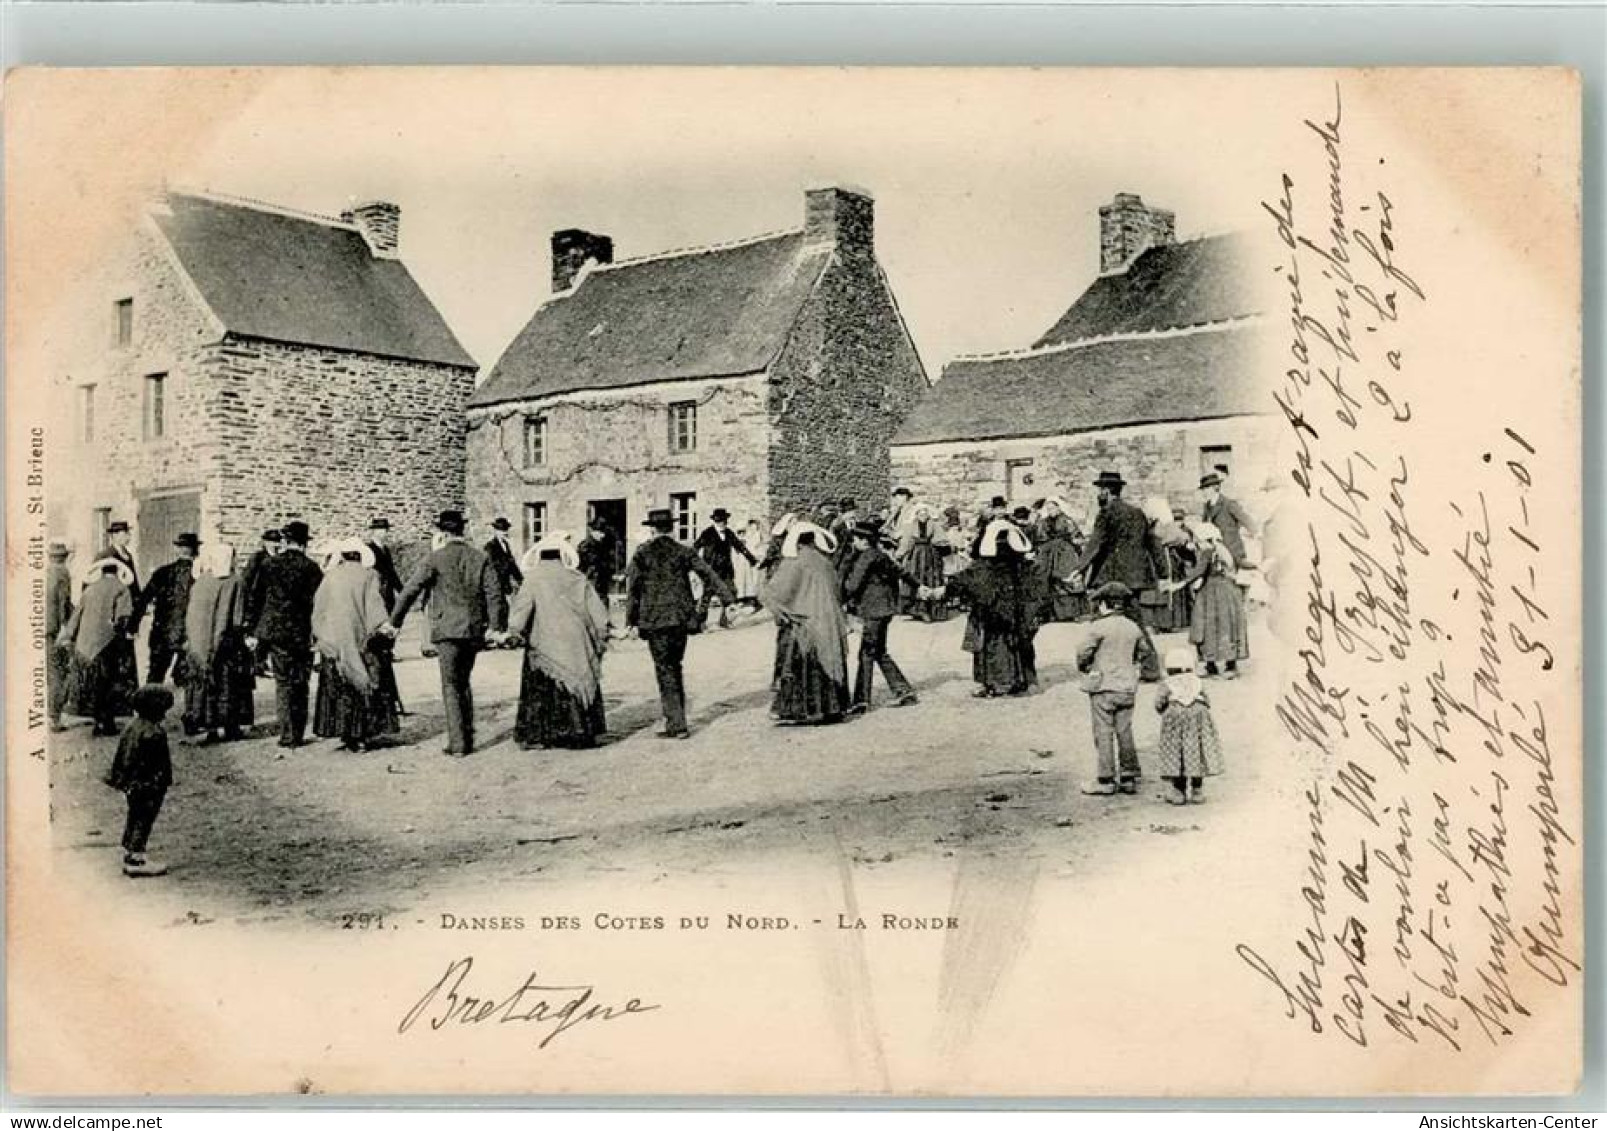 A Waron. opticien édit., St Brieuc
291. - Danses des Cotes du Nord. - La Ronde
Bretagne
Suzanne Morequ est ravie des
cartes de Mr Le Prevst, et lui demande
de vouloir bien échanger 2 à la fois.
N'est-ce pas trop?
Sympathies et amitié
Quimperlé 31-1-01
Ansichtskarten-Center